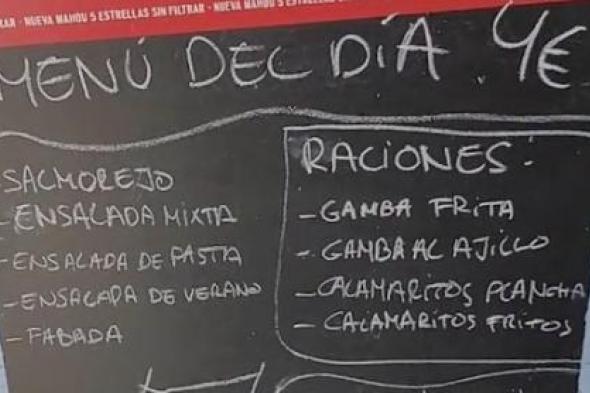 RAR · NUEVA MAHOU 5 ESTRELLAS SIN FILTRAR · NUEVA MAHOU 5 ESTRELLAS
MENÚ DEL DÍA. 4€
SALMOREJO
- ENSALADA MIXTA
- ENSALADA DE PASTA
- ENSALADA DE VERANO
- FABADA
RACIONES:
- GAMBA FRITA
- GAMBA AL AJILLO
- CALAMARITOS PLANCHA
- CALAMARITOS FRITOS